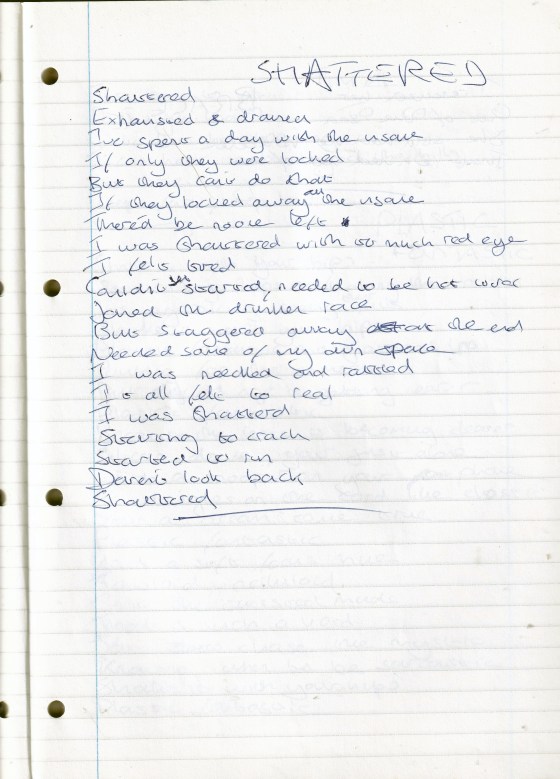 SHATTERED
Shattered
Exhausted & drained
I've spent a day with the insane
If only they were locked
But they can't do that
If they locked away all the insane
There'd be noone left
I was shattered with to much red eye
I felt tired
Couldn't get started, needed to be hot
Joined the drunken race
But staggered away at the end
Needed some of my own space
I was needled and rattled
It all felt to real
I was Shatterd
Starting to crack
Started to run
Daren't look back
Shattered